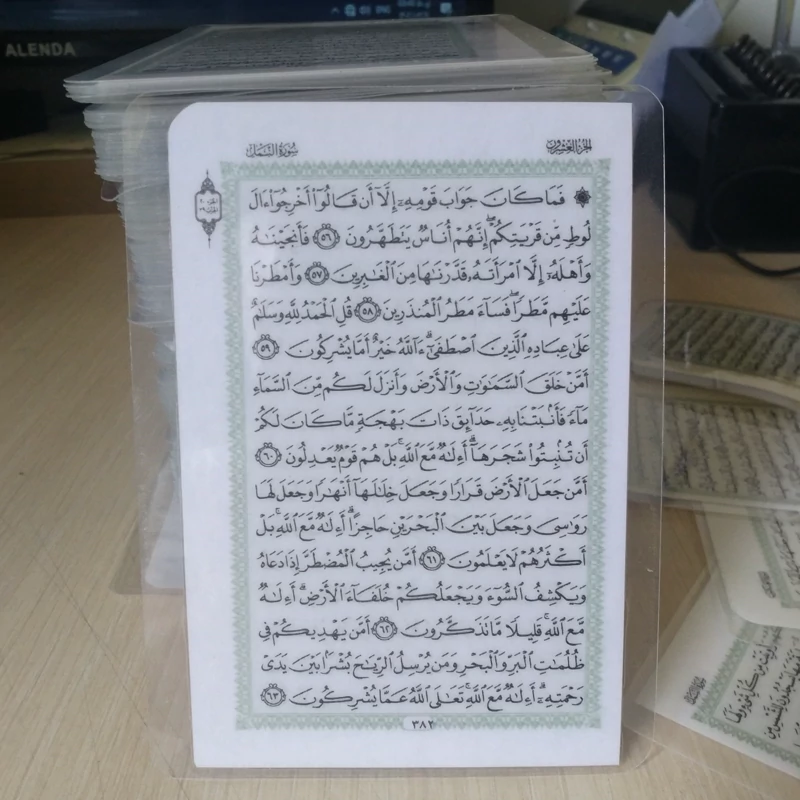 ALENDA
سُورَةُ النَّمْلِ
الجُزْءُ العِشْرُونَ
۞ فَمَا كَانَ جَوَابَ قَوْمِهِۦٓ إِلَّآ أَن قَالُوٓا۟ أَخْرِجُوٓا۟ ءَالَ
لُوطٍ مِّن قَرْيَتِكُمْ ۖ إِنَّهُمْ أُنَاسٌ يَتَطَهَّرُونَ ٥٦ فَأَنجَيْنَٰهُ
وَأَهْلَهُۥٓ إِلَّا ٱمْرَأَتَهُۥ قَدَّرْنَٰهَا مِنَ ٱلْغَٰبِرِينَ ٥٧ وَأَمْطَرْنَا
عَلَيْهِم مَّطَرًا ۖ فَسَآءَ مَطَرُ ٱلْمُنذَرِينَ ٥٨ قُلِ ٱلْحَمْدُ لِلَّهِ وَسَلَٰمٌ
عَلَىٰ عِبَادِهِ ٱلَّذِينَ ٱصْطَفَىٰٓ ۗ ءَآللَّهُ خَيْرٌ أَمَّا يُشْرِكُونَ ٥٩
أَمَّنْ خَلَقَ ٱلسَّمَٰوَٰتِ وَٱلْأَرْضَ وَأَنزَلَ لَكُم مِّنَ ٱلسَّمَآءِ
مَآءً فَأَنۢبَتْنَا بِهِۦ حَدَآئِقَ ذَاتَ بَهْجَةٍ مَّا كَانَ لَكُمْ
أَن تُنۢبِتُوا۟ شَجَرَهَآ ۗ أَءِلَٰهٌ مَّعَ ٱللَّهِ ۚ بَلْ هُمْ قَوْمٌ يَعْدِلُونَ ٦٠
أَمَّن جَعَلَ ٱلْأَرْضَ قَرَارًا وَجَعَلَ خِلَٰلَهَآ أَنْهَٰرًا وَجَعَلَ لَهَا
رَوَٰسِىَ وَجَعَلَ بَيْنَ ٱلْبَحْرَيْنِ حَاجِزًا ۗ أَءِلَٰهٌ مَّعَ ٱللَّهِ ۚ بَلْ
أَكْثَرُهُمْ لَا يَعْلَمُونَ ٦١ أَمَّن يُجِيبُ ٱلْمُضْطَرَّ إِذَا دَعَاهُ
وَيَكْشِفُ ٱلسُّوٓءَ وَيَجْعَلُكُمْ خُلَفَآءَ ٱلْأَرْضِ ۗ أَءِلَٰهٌ
مَّعَ ٱللَّهِ ۚ قَلِيلًا مَّا تَذَكَّرُونَ ٦٢ أَمَّن يَهْدِيكُمْ فِى
ظُلُمَٰتِ ٱلْبَرِّ وَٱلْبَحْرِ وَمَن يُرْسِلُ ٱلرِّيَٰحَ بُشْرًۢا بَيْنَ يَدَىْ
رَحْمَتِهِۦٓ ۗ أَءِلَٰهٌ مَّعَ ٱللَّهِ ۚ تَعَٰلَى ٱللَّهُ عَمَّا يُشْرِكُونَ ٦٣
٣٨٢